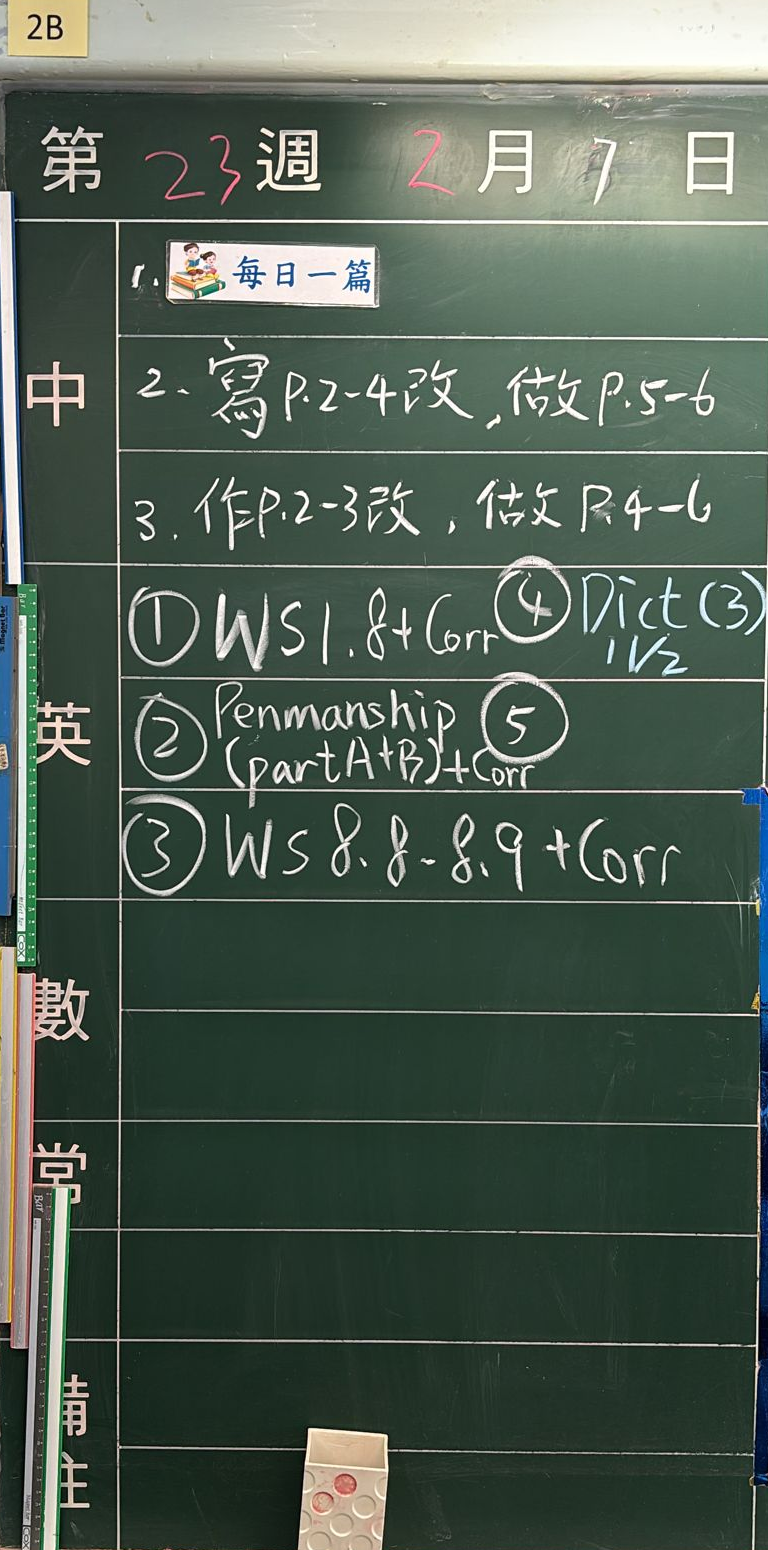 2B
第 23 週 2 月 7 日
中
1. 每日一篇
2. 寫P.2-4改,做P.5-6
3. 作P.2-3改,做P.4-6
英
① WS1.8+Corr ④ Dict (3)
11/2
② Penmanship ⑤
(part A+B)+Corr
③ WS 8.8-8.9 +Corr
數
常
備註